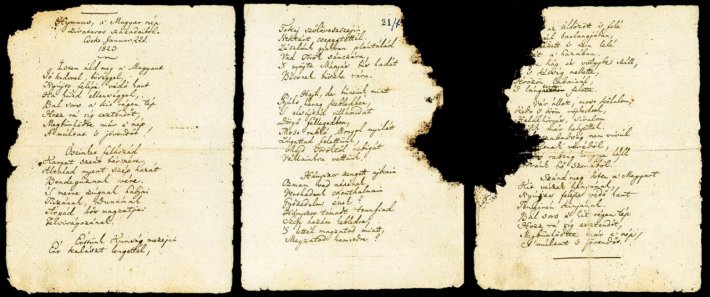 Hymnus, a' Magyar nép
zivataros századaiból.
Cseke. Január. 22d.
1823
Isten áldd meg a' Magyart
Jó kedvvel, bőséggel,
Nyújts feléje védő kart
Ha küzd ellenséggel,
Bal sors a' kit régen tép
Hozz reá víg esztendőt,
Megbűnhődte már a' nép
A' múltat 's jövendőt!
Őseinket felhozád
Kárpát szent bérczére,
Általad nyert szép hazát
Bendegúznak vére.
'S merre zúgnak habjai
Tiszának, Dunának
Árpád hős magzatjai
Felvirágozának.
Értünk Kunság mezején
Ért kalászt lengettél,
21/
Tokaj szőlővesszein
Nektárt csepegtettél.
Zászlónk gyakran plántálád
Vad Török sánczára,
'S nyögte Mátyás bús hadát
Bécsnek büszke vára.
Hajh, de bűneink miatt
Gyúlt harag kebledben,
'S elsujtád villámidat
Dörgő fellegedben,
Most rabló Mongol nyilát
Zúgattad felettünk,
Majd Töröktől rabigát
Vállainkra vettünk.
Hányszor zengett ajkain
Ozman vad népének
Vert hadunk csonthalmain
Győzedelmi ének!
Hányszor támadt tenfiad
Szép hazám kebledre,
'S lettél magzatod miatt
Magzatod hamvedre?
üldözött 's felé
barlangjában,
nézett 's nem lelé
a' hazában,
hág és völgybe száll,
kétség mellette,
Vérözön lábainál,
'S lángtenger felette.
Vár állott, most kőhalom;
Kedv 's öröm röpkedtek,
Halálhörgés, siralom
már helyettek.
szabadság nem virúl
véréből,
rabság könnye hull
hő szeméből.
Szánd meg Isten a' Magyart
Kit vészek hányának,
Nyújts feléje védő kart
Tengerén kínjának.
Bal sors a' kit régen tép
Hozz reá víg esztendőt,
Megbűnhődte már a' nép
A' múltat 's jövendőt.